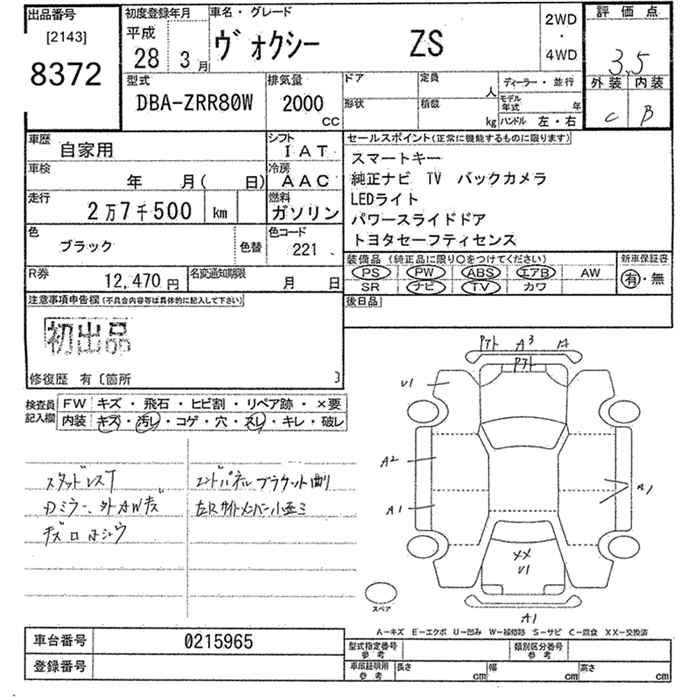 出品番号
[2143]
8372
初度登録年月
平成
28 3月
車名・グレード
ヴォクシー ZS
2WD
・
4WD
評価点
3.5
外装 内装
C B
型式
DBA-ZRR80W
排気量
2000
CC
ドア
形状
定員
人
積載
kg
ディーラー・並行
モデル年式 年
ハンドル 左・右
車歴
自家用
シフト
IAT
車検
年 月( 日)
冷房
AAC
走行
2万7千500 km
燃料
ガソリン
色
ブラック
色替
色コード
221
R券
12,470円
名変通知期限
月 日
セールスポイント(正常に機能するものに限ります)
スマートキー
純正ナビ TV バックカメラ
LEDライト
パワースライドドア
トヨタセーフティセンス
装備品(純正品に限り○をつけてください)
PS PW ABS エアB AW
SR ナビ TV カワ
新車保証書
有・無
後日品
注意事項申告欄(不具合内容等は具体的に記入して下さい)
初出品
修復歴 有〔箇所 〕
検査員
記入欄
FW キズ・飛石・ヒビ割・リペア跡・×要
内装 キズ・汚レ・コゲ・穴・スレ・キレ・破レ
スタッドレスT
Dミラー、外カWキズ
エンドパネルブラケット曲り
左Rサイドメンバー小歪ミ
Pアト A3
Pアト
U1
A2
A1
XX
U1
A1
スペア
A-キズ E-エクボ U-凹み W-補修跡 S-サビ C-腐食 XX-交換済
車台番号 0215965
登録番号
型式指定番号
参考
類別区分番号
参考
車庫証明用
参考
長さ cm 幅 cm 高さ cm